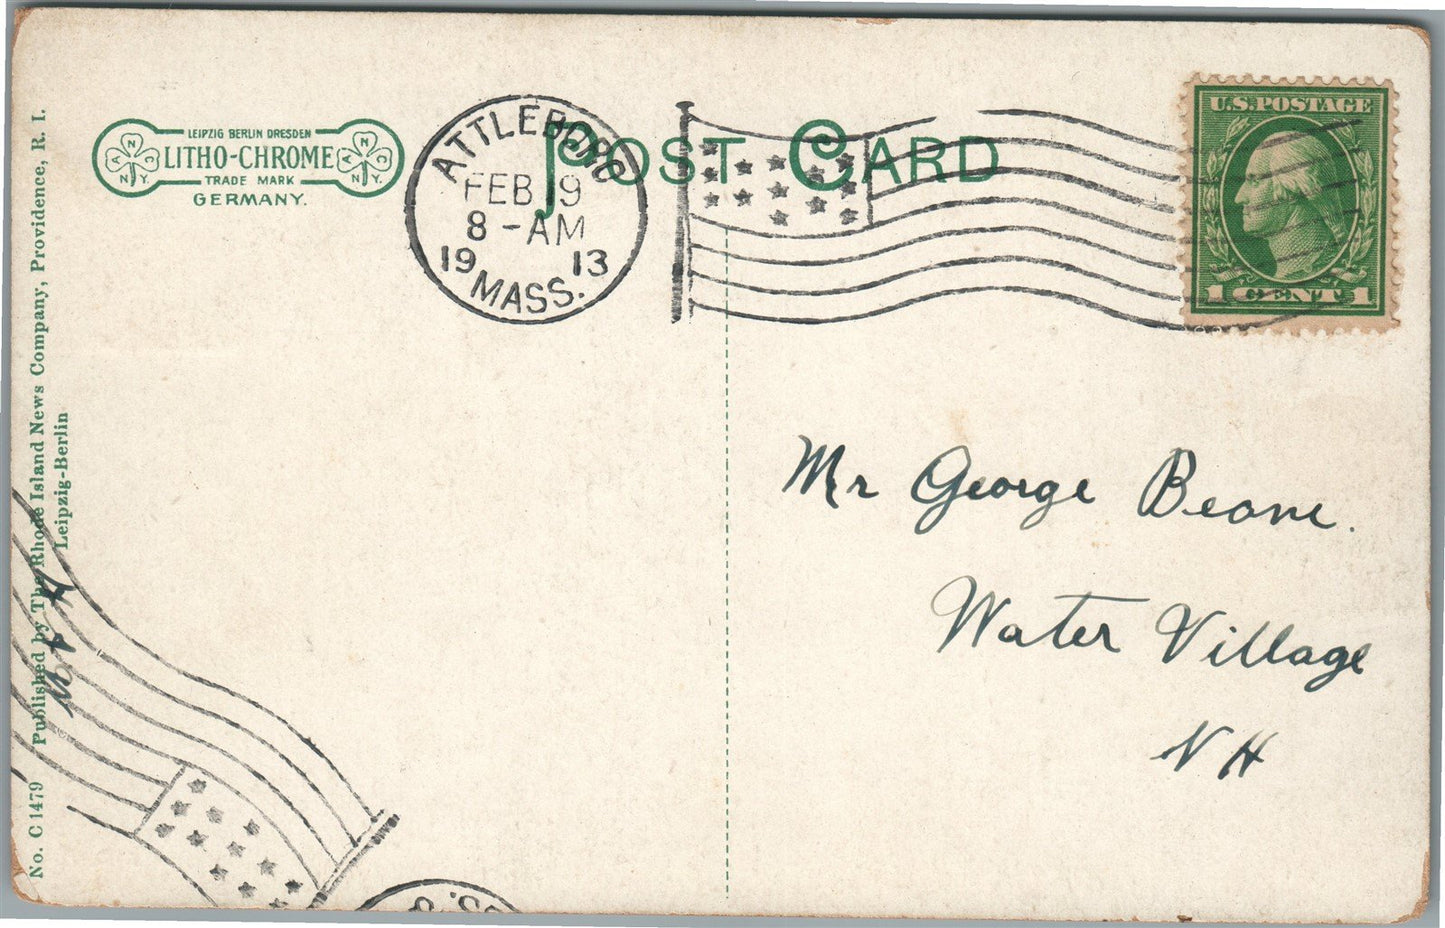 LEIPZIG BERLIN DRESDEN
LITHO-CHROME
TRADE MARK
GERMANY.
A N C N.Y.
A N C N.Y.
POST CARD
ATTLEBORO
FEB 19
8-AM
1913
MASS.
U.S. POSTAGE
1 CENT 1
Mr George Beane.
Water Village
NH
No. C 1479 Published by The Rhode Island News Company, Providence, R. I.
Leipzig-Berlin